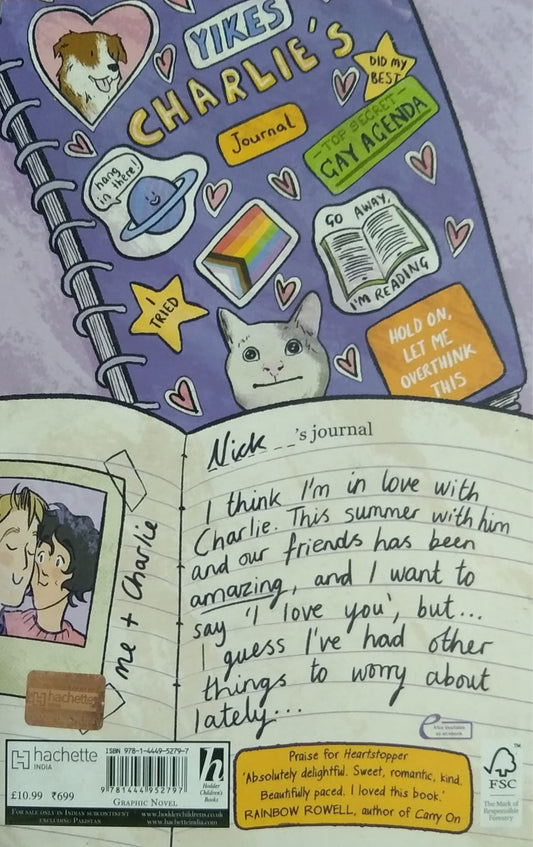 YIKES
CHARLIE'S
Journal
DID my
BEST
- TOP SECRET -
GAY AGENDA
hang
in there!
GO AWAY,
I'M READING
I
TRIED
HOLD ON,
LET ME
OVERTHINK
THIS
Nick _ _'s journal
I think I'm in love with
Charlie. This summer with him
and our friends has been
amazing, and I want to
say 'I love you', but...
I guess I've had other
things to worry about
lately...
me + Charlie
hachette
Also Available
as an ebook
hachette
INDIA
£10.99 ₹699
ISBN 978-1-4449-5279-7
9 781444 952797
GRAPHIC NOVEL
h
Hodder
Children's
Books
FOR SALE ONLY IN INDIAN SUBCONTINENT
EXCLUDING PAKISTAN
www.hodderchildrens.co.uk
www.hachetteindia.com
Praise for Heartstopper
'Absolutely delightful. Sweet, romantic, kind.
Beautifully paced. I loved this book.'
RAINBOW ROWELL, author of Carry On
FSC
The Mark of
Responsible
Forestry